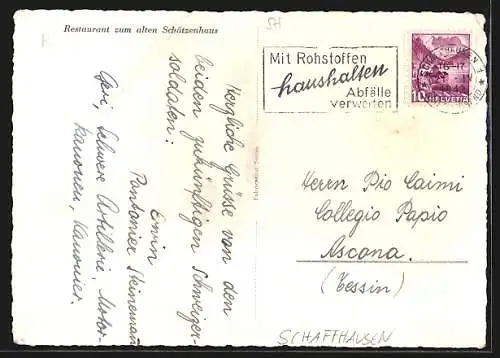 SH
Restaurant zum alten Schützenhaus
Herzliche Grüsse von den
beiden zukünftigen Schweizer-
soldaten:
Erwin
Pontonier Steinemann
schwere Artillerie Motor-
kanonen, Kanonier.
Mit Rohstoffen
haushalten
Abfälle
verwerten
10 HELVETIA
Herrn Pio Caimi
Collegio Papio
Ascona.
(Tessin)
SCHAFFHAUSEN